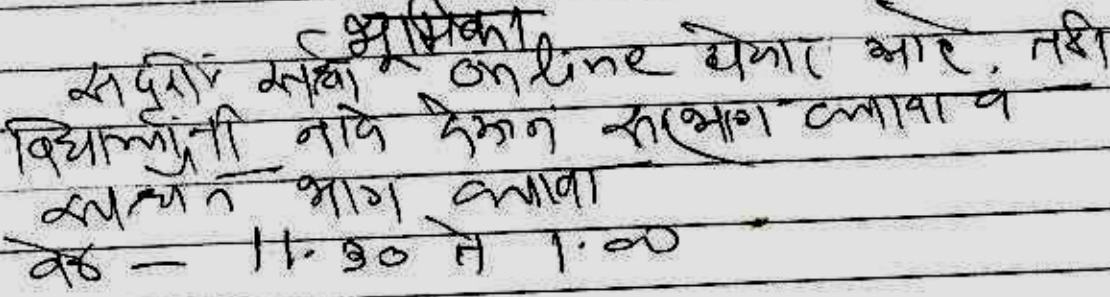 भूमिका
सदरची स्पर्धा online घेणार आहे. तरी
विद्यार्थ्यांनी नावे देऊन सहभाग घ्यावा व
स्पर्धेत भाग घ्यावा
वेळ - 11.30 ते 1.00